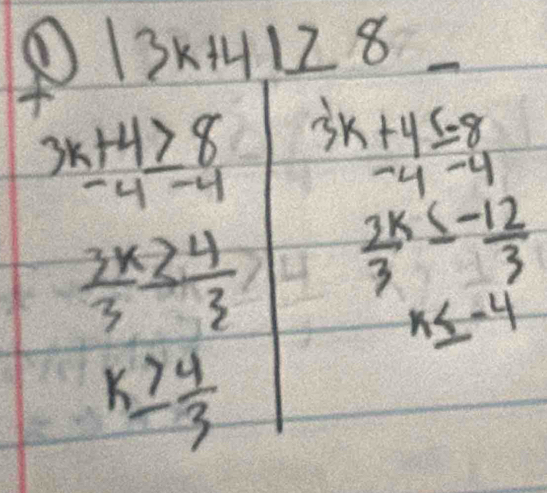 ① |3k+4| ≥ 8
+ −
3k+4 ≥ 8
-4 -4
3k/3 ≥ 4/3
k ≥ 4/3
3k+4 ≤ -8
-4 -4
3k/3 ≤ -12/3
k ≤ -4